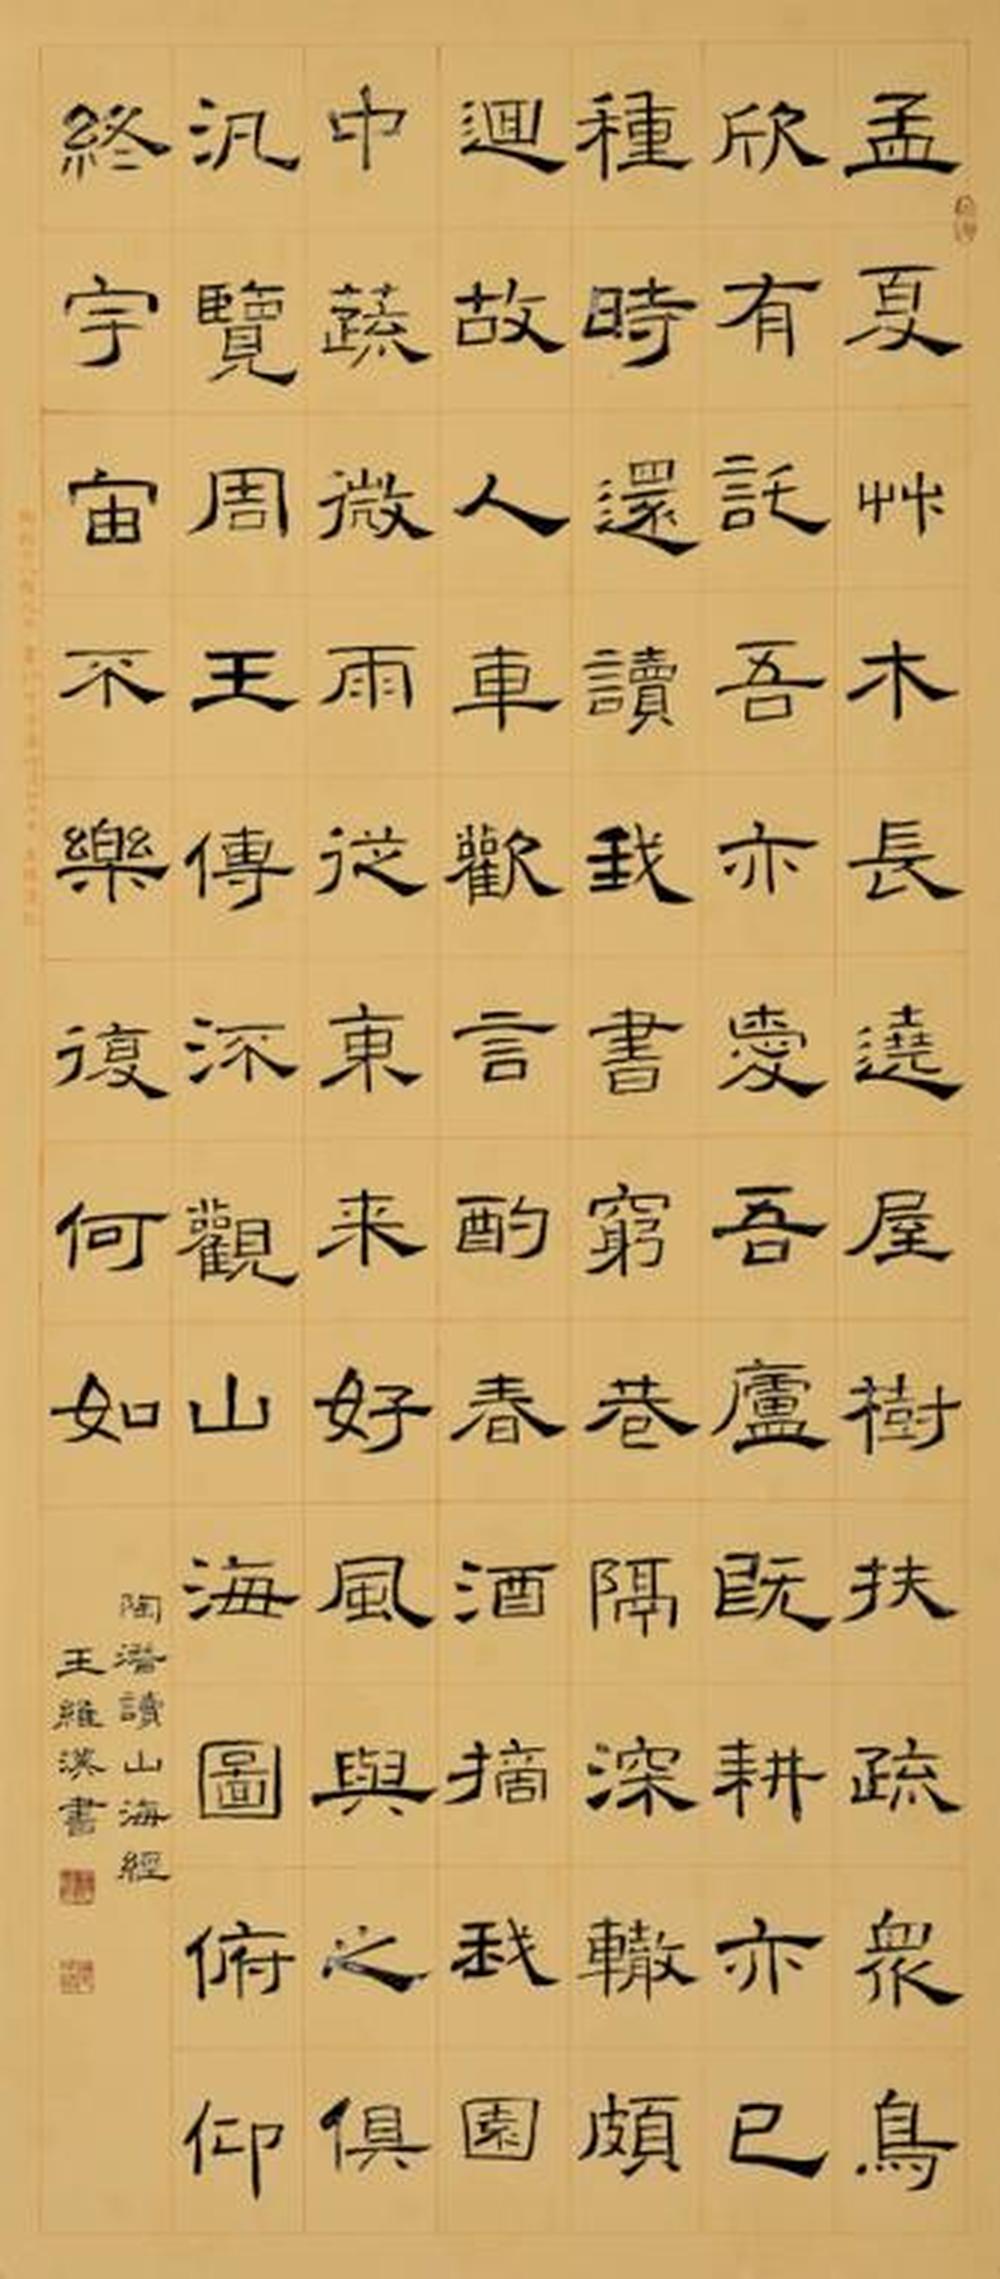 孟夏艸木長遶屋樹扶疏衆鳥
欣有託吾亦愛吾廬既耕亦已
種時還讀我書窮巷隔深轍頗
迴故人車歡言酌春酒摘我園
中蔬微雨從東来好風與之俱
汎覽周王傳流觀山海圖俯仰
終宇宙不樂復何如
陶潛讀山海經
王維漢書